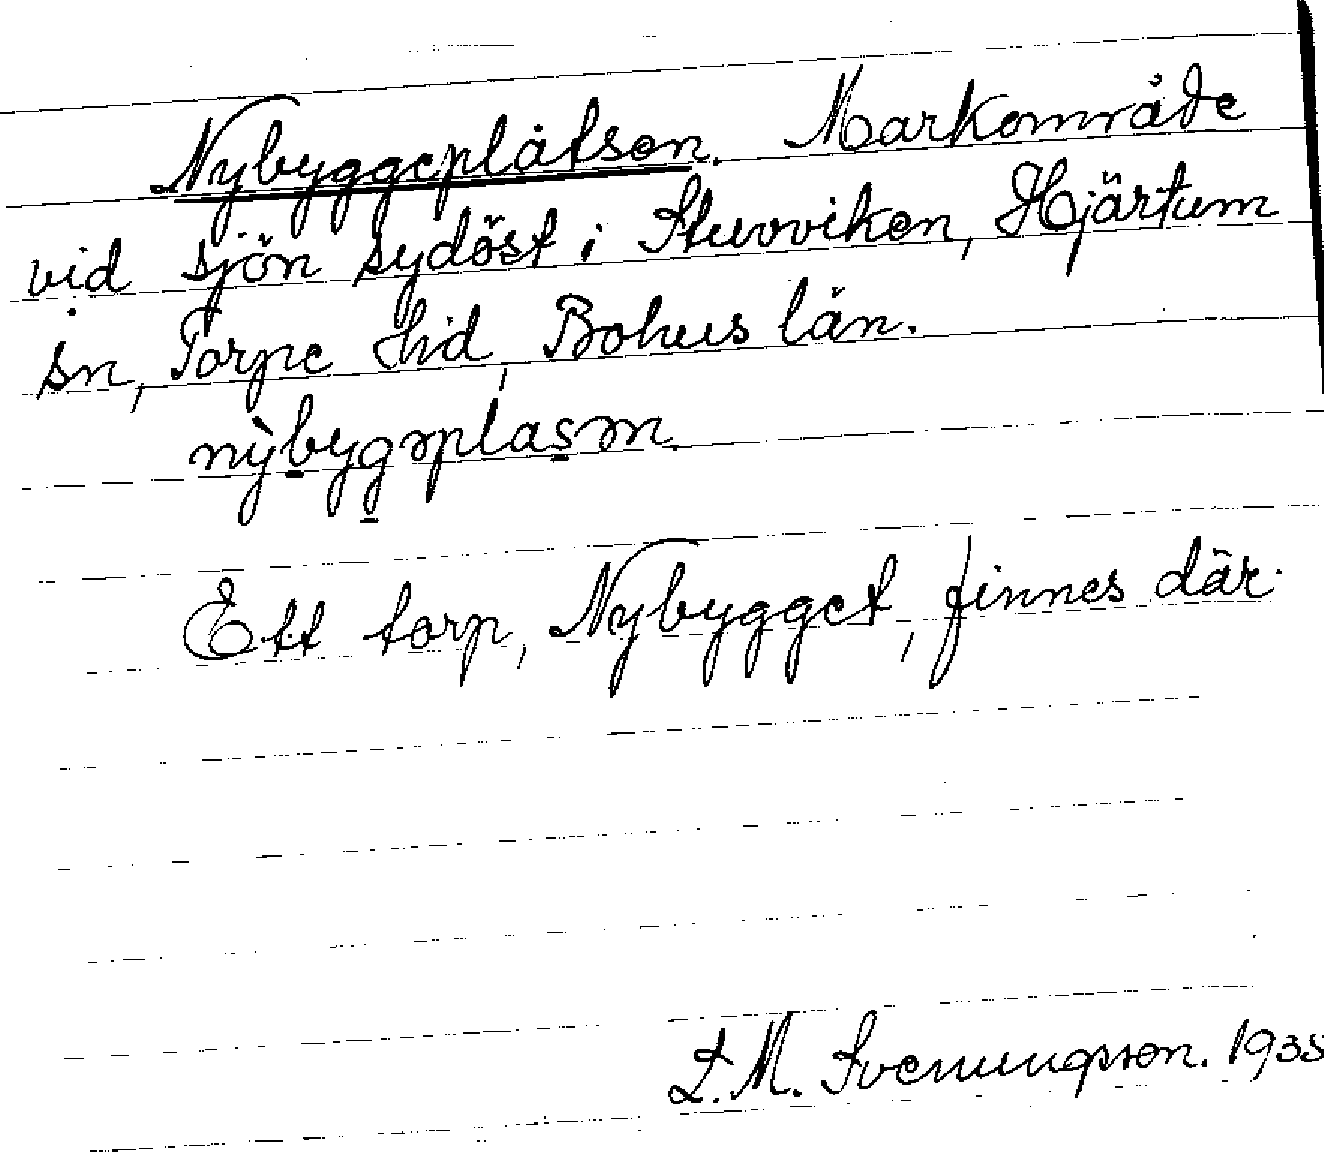 Nybyggeplåtsen. Markområde
vid sjön sydöst i Stuvviken, Hjärtum
sn, Torpe hd, Bohus län.
nỳbygəplasən.
Ett torp, Nybygget, finnes där.
L. M. Svenungsson. 1935